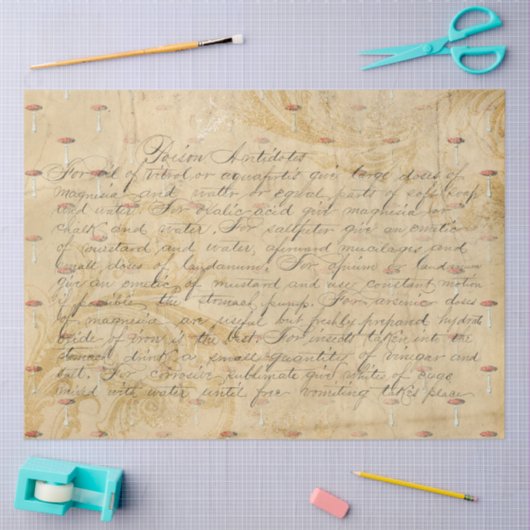 Poison Antidotes
For oil of vitrol or aquafortis give large doses of
magnesia and water or equal parts of soft soap
and water. For oxalic acid give magnesia or
chalk and water. For saltpeter give an emetic
of mustard and water, afterward mucilages and
small doses of laudanum. For opium or laudanum
give an emetic of mustard and use constant motion
if possible the stomach pump. For arsenic doses
of magnesia are useful but freshly prepared hydrate
oxide of iron is the best. For insects taken into the
stomach drink a small quantities of vinegar and
salt. For corrosive sublimate give whites of eggs
mixed with water until free vomiting takes place